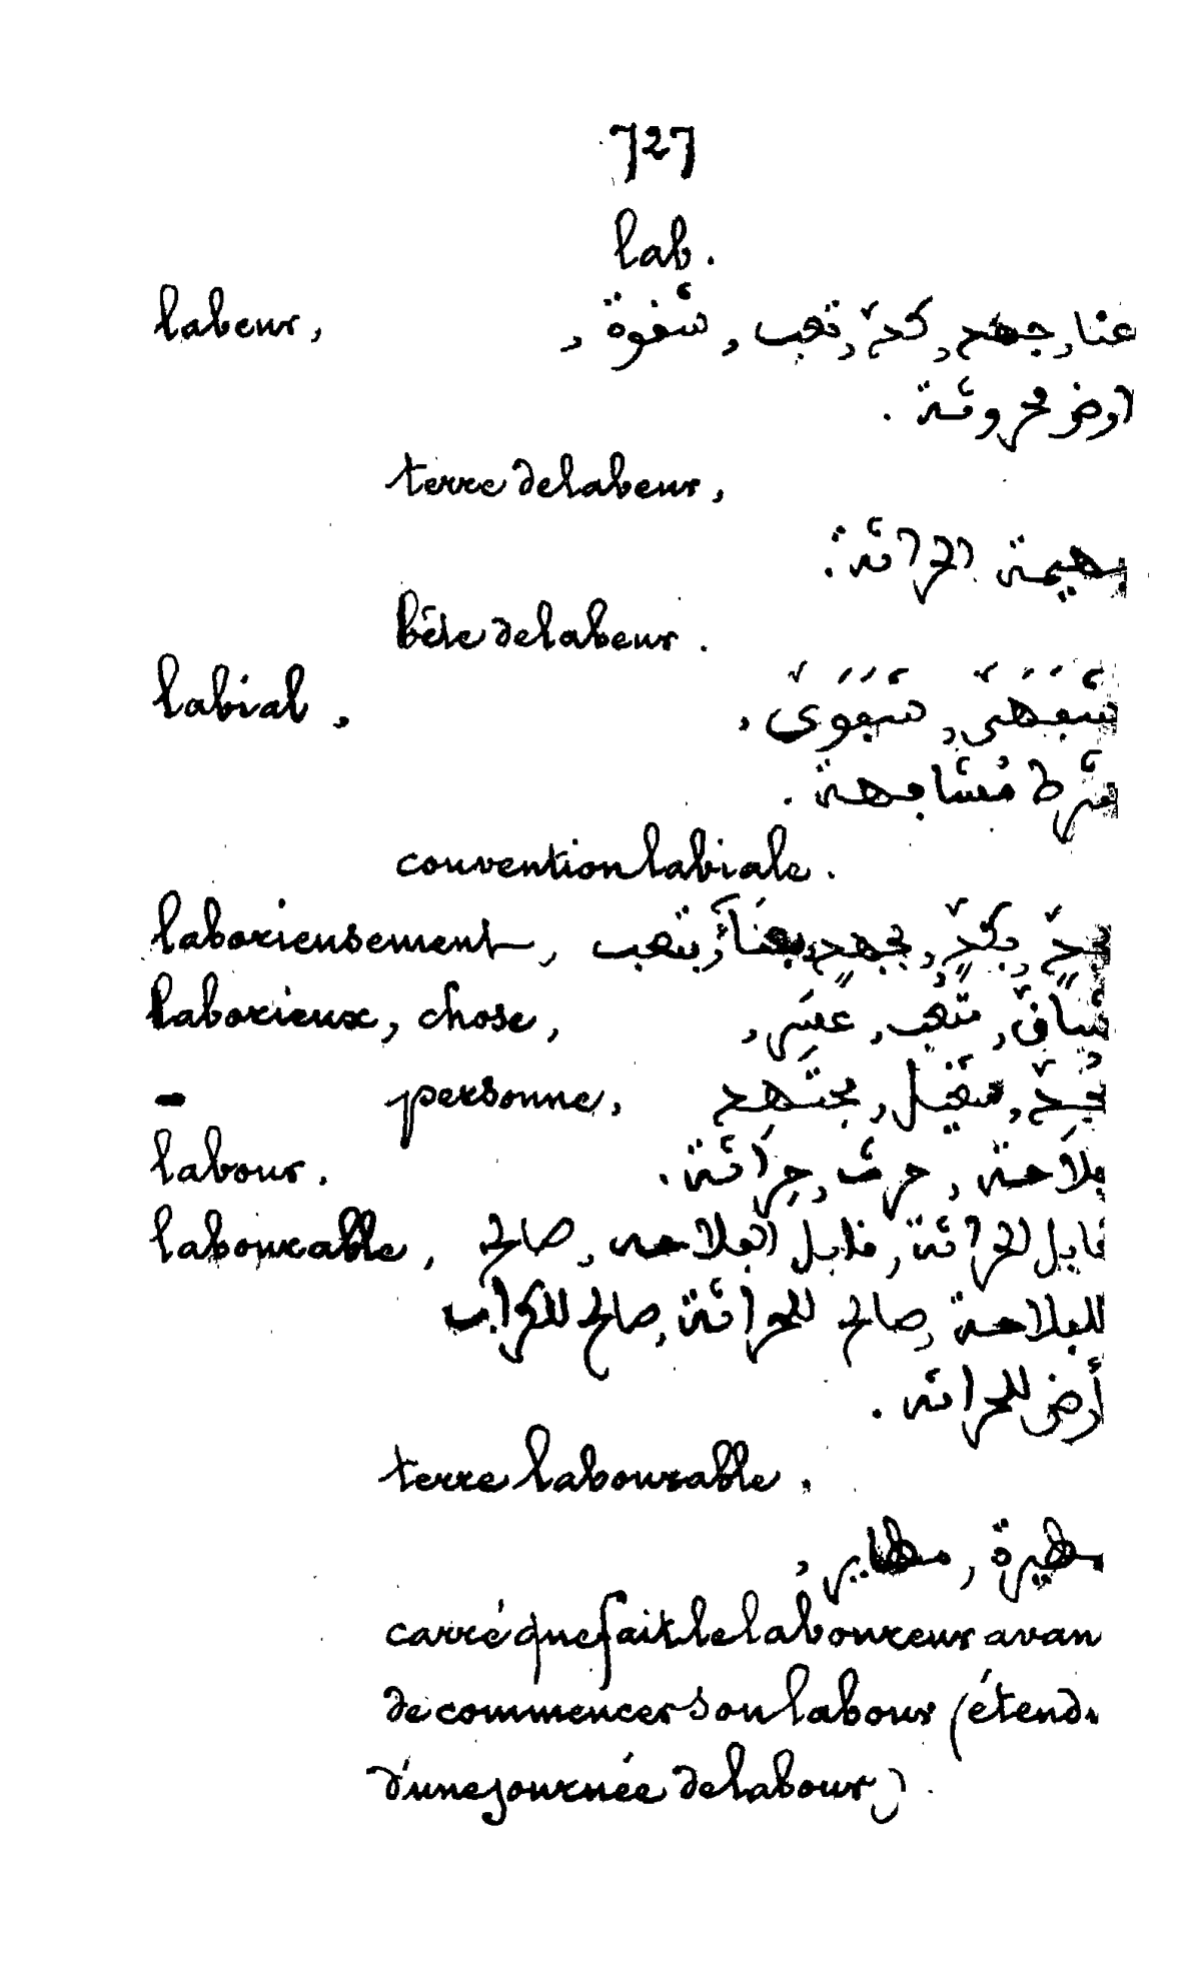 727
lab.
labeur, عنا, جهد, كدّ, تعب, شغوة,
ارض محروثة.
terre de labeur,
بهيمة الحراثة.
bête de labeur.
labial, شَفَهَى, شَفَوَىّ,
شرط مُشَابهة.
convention labiale.
laborieusement, بكدٍّ, بجهدٍ, بعناءٍ, بتعب
laborieux, chose, شاقّ, متعب, عسر,
— personne, مُجِدّ, مجتهد
labour. فلاحة, حرث, حِرَاثة.
labourable, قابل الحراثة, قابل الفلاحه, صالح
للفلاحة, صالح للحراثة, صالح للكراب
أرض للحراثة.
terre labourable.
carré que fait le laboureur avan
de commencer son labour (étend.
d'une journée de labour)